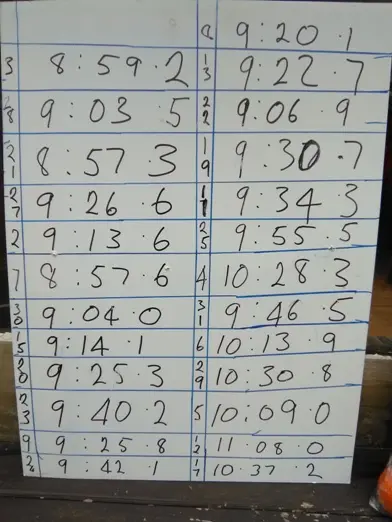 3 8:59.2
9:03.5
21 8:57.3
27 9:26.6
2 9:13.6
7 8:57.6
30 9:04.0
15 9:14.1
20 9:25.3
23 9:40.2
9 9:25.8
9:42.1
8 9:20.1
13 9:22.7
22 9:06.9
19 9:30.7
11 9:34.3
25 9:55.5
4 10:28.3
31 9:46.5
6 10:13.9
29 10:30.8
5 10:09.0
12 11:08.0
17 10:37.2